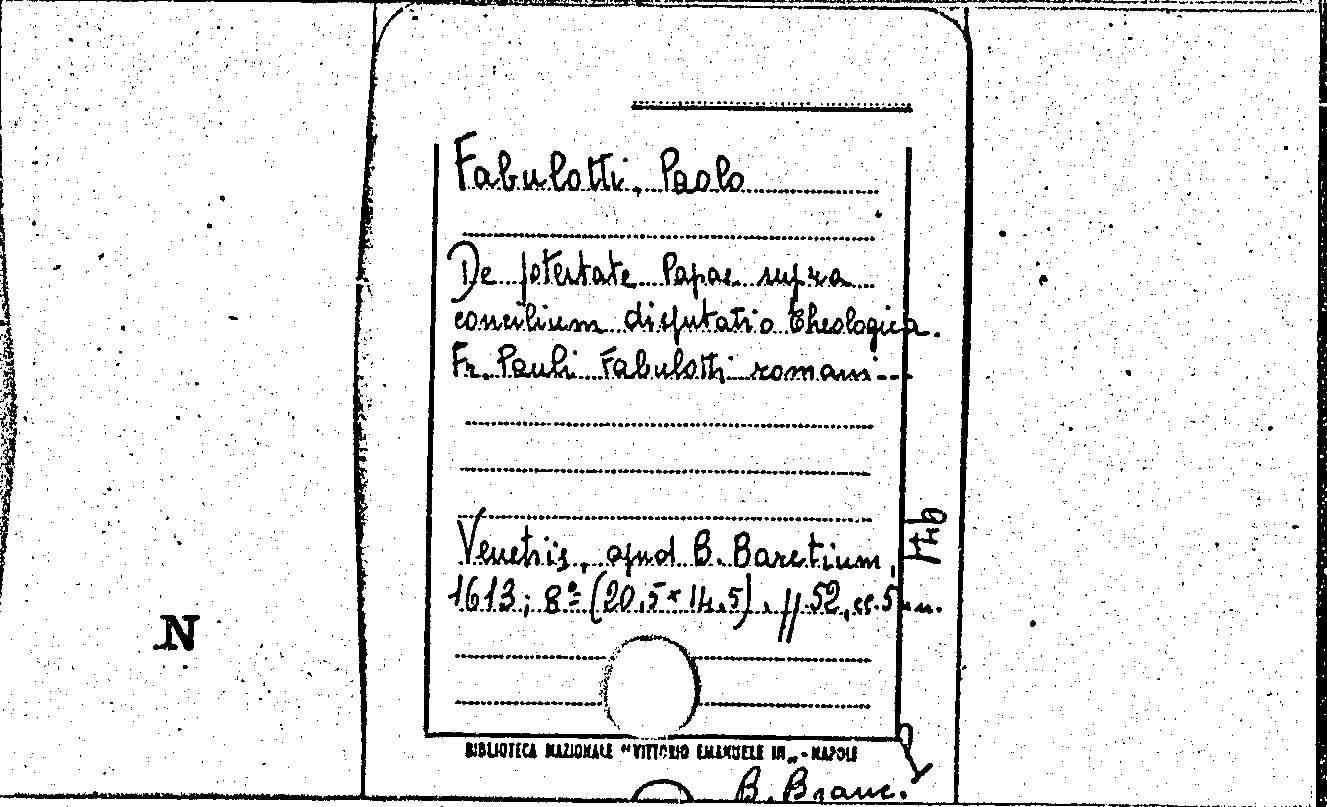 Fabulotti, Paolo
De potestate Papae supra
concilium disputatio theologica.
Fr. Pauli Fabulotti romani...
Venetiis, apud B. Baretium,
1613; 8º (20,5 x 14,5). pp 52, cc. 5 nn.
N
BIBLIOTECA NAZIONALE "VITTORIO EMANUELE III„ - NAPOLI
B. Branc.